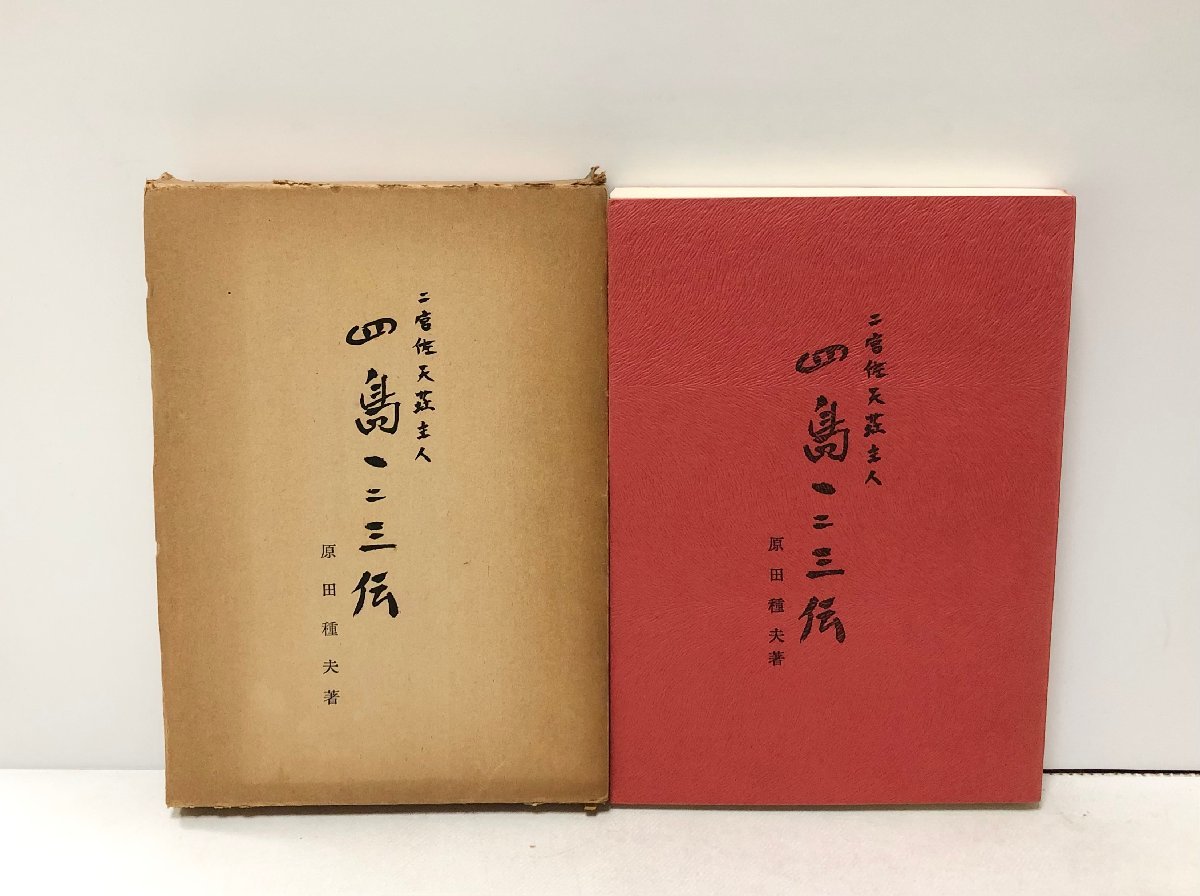 二宮佐天荘主人
四島一二三伝
原田種夫著
二宮佐天荘主人
四島一二三伝
原田種夫著